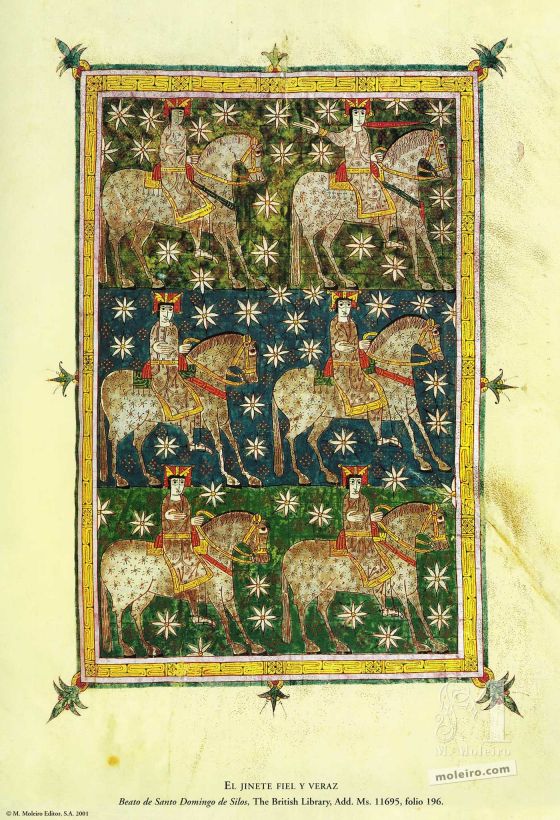 M. Moleiro
moleiro.com
EL JINETE FIEL Y VERAZ
Beato de Santo Domingo de Silos, The British Library, Add. Ms. 11695, folio 196.
© M. Moleiro Editor, S.A. 2001